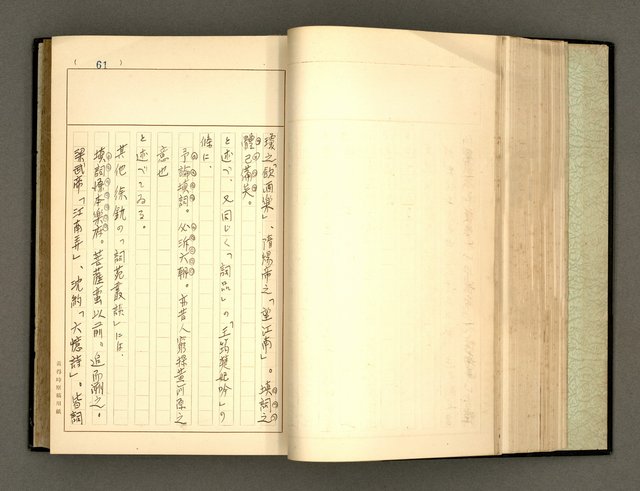 ( 61 )
瓊之「飲酒樂」、隋煬帝之「望江南」。填詞之
體已備矣。
と述べ、又同じく「詞品」の「王筠楚妃吟」の
條に、
予論填詞。必泝六朝。亦昔人窮探黃河源之
意也
と述べてゐる。
其他 徐釚の「詞苑叢談」には、
填詞原本樂府。菩薩蠻以前。追而溯之。
梁武帝「江南弄」、沈約「六憶詩」。皆詞
黃得時原稿用紙